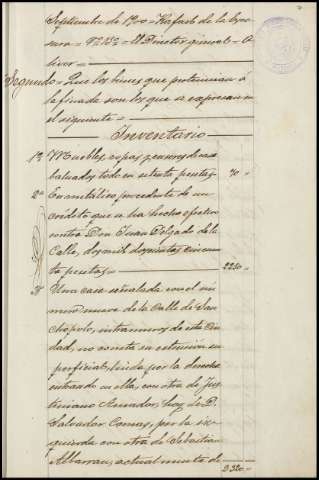 Septiembre de 1900 = Rafael de la
= El Director general =
Segundo = Que los bienes que pertenecian á
la finada son los que se expresan en
el siguiente =
Inventario
1º Muebles, ropas y enseres de casa
valuados todo en setenta pesetas, 70 =
2º En metálico procedente de un
crédito que se ha hecho efectivo
contra Don Juan Delgado de la
Calle, dos mil doscientas cincuen
ta pesetas = 2250 =
3º Una casa señalada con el nú
mero nueve de la Calle de San
, intramuros de esta Ciu
dad, no consta su extensión su
perficial; linda por la derecha
entrando en ella, con otra de Jus
tiniano Amador, hoy de D.
Salvador Comas, por la iz
quierda con otra de Sebastian
Albarran, actualmente de
2320 =